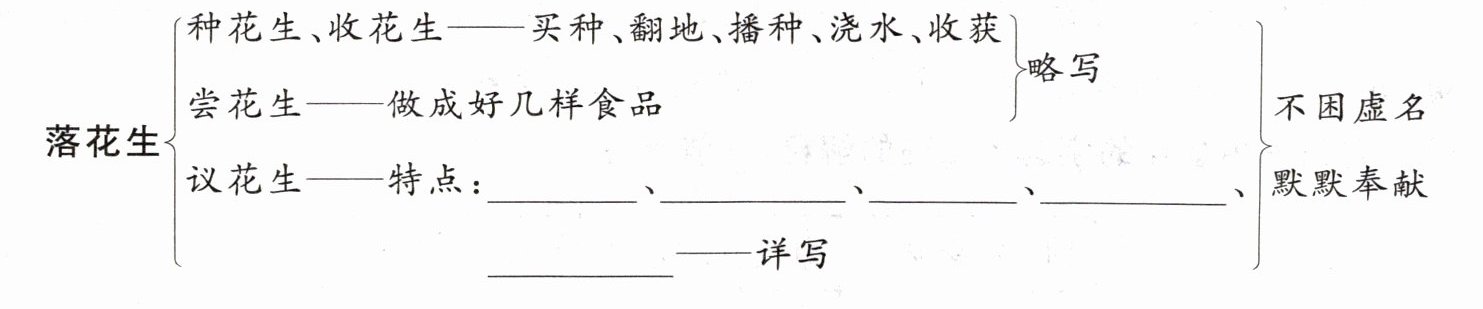 种花生、收花生——买种、翻地、播种、浇水、收获
略写
尝花生——做成好几样食品
不困虚名
落花生
议花生——特点:________、________、________、________、
默默奉献
________——详写